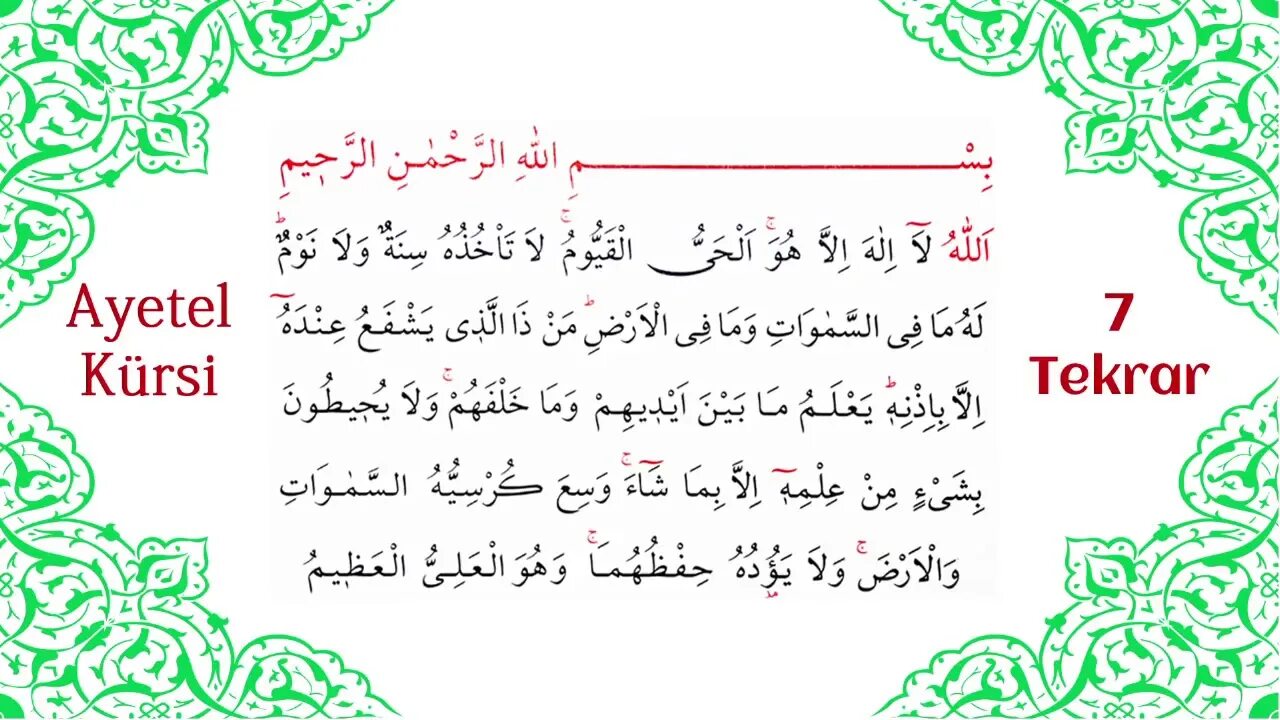 بِسْـــــــــــــــمِ اللهِ الرَّحْمٰنِ الرَّحٖيمِ
اَللّٰهُ لَٓا اِلٰهَ اِلَّا هُوَۚ اَلْحَىُّ الْقَيُّومُۚ لَا تَاْخُذُهُ سِنَةٌ وَلَا نَوْمٌؕ
لَهُ مَا فِى السَّمٰوَاتِ وَمَا فِى الْاَرْضِؕ مَنْ ذَا الَّذٖى يَشْفَعُ عِنْدَهُٓ
اِلَّا بِاِذْنِهٖؕ يَعْلَمُ مَا بَيْنَ اَيْدٖيهِمْ وَمَا خَلْفَهُمْۚ وَلَا يُحٖيطُونَ
بِشَىْءٍ مِنْ عِلْمِهٖٓ اِلَّا بِمَا شَٓاءَۚ وَسِعَ كُرْسِيُّهُ السَّمٰوَاتِ
وَالْاَرْضَۚ وَلَا يَؤُدُهُ حِفْظُهُمَاۚ وَهُوَ الْعَلِىُّ الْعَظٖيمُ
Ayetel
Kürsi
7
Tekrar